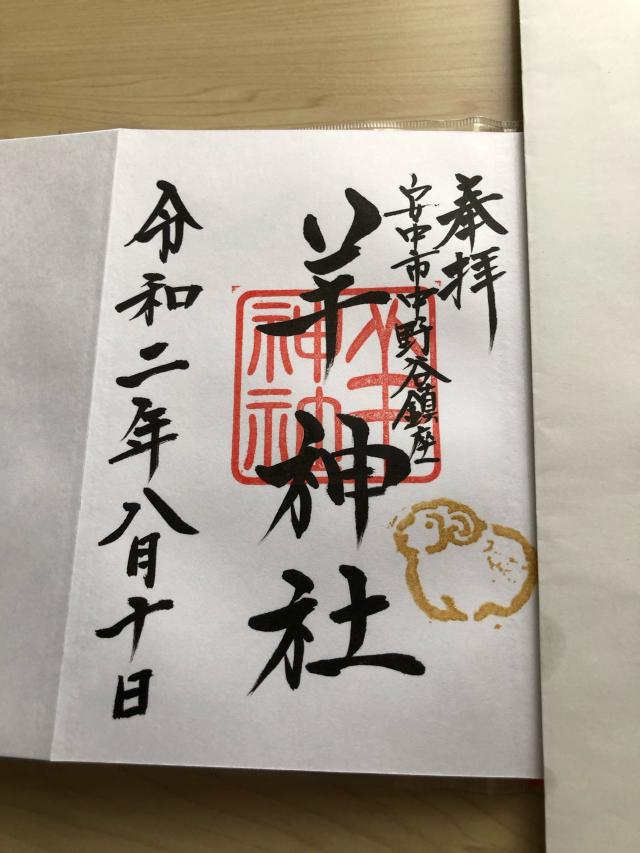 奉拝
安中市中野谷鎮座
羊神社
羊神社
令和二年八月十日